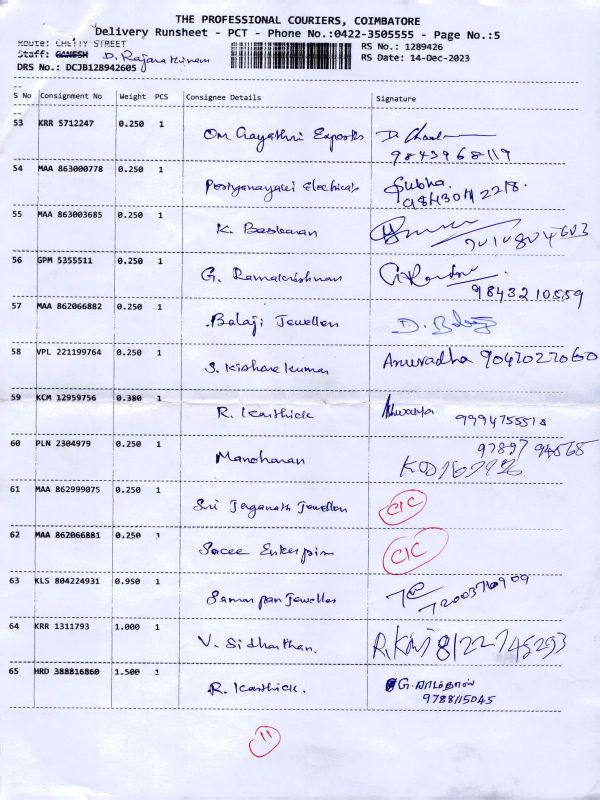 THE PROFESSIONAL COURIERS, COIMBATORE
Delivery Runsheet - PCT - Phone No.:0422-3505555 - Page No.:5
Route: CHETTY STREET
Staff: GANESH D. Rajarathinam
DRS No.: DCJB128942605
RS No.: 1289426
RS Date: 14-Dec-2023
S No Consignment No Weight PCS Consignee Details Signature
53 KRR 5712247 0.250 1 Om Gayathri Exports D.
9843968119
54 MAA 863000778 0.250 1 Periyanayaki Electricals Subha.
55 MAA 863003685 0.250 1 K. Baskaran
56 GPM 5355511 0.250 1 G. Ramakrishnan
9843210559
57 MAA 862066882 0.250 1 Balaji Jewellers D. Balaji
58 VPL 221199764 0.250 1 S. Kishore Kumar Anuradha 9047027060
59 KCM 12959756 0.380 1 R. Karthick Ishwarya 9994755518
60 PLN 2304979 0.250 1 Manoharan
61 MAA 862999075 0.250 1 Sri Jeganath Jewellers CIC
62 MAA 862066881 0.250 1 Enterprises CIC
63 KLS 804224931 0.950 1 Samarpan Jewellers
7200376909
64 KRR 1311793 1.000 1 V. Sidharthan. 8122745293
65 HRD 388816860 1.500 1 R. Karthick. G. ராம்தாஸ்
9788115045
11